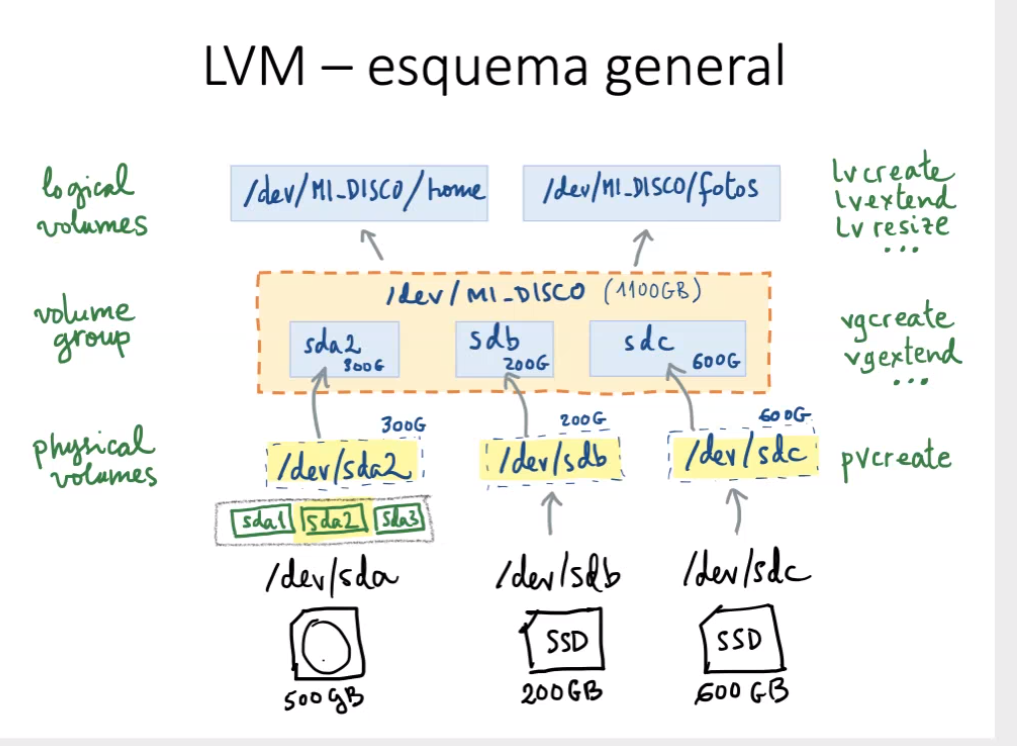 LVM – esquema general
logical
volumes
/dev/MI_DISCO/home
/dev/MI_DISCO/fotos
lvcreate
lvextend
lvresize
...
volume
group
/dev/MI_DISCO (1100GB)
sda2
300G
sdb
200G
sdc
600G
vgcreate
vgextend
...
physical
volumes
300G
/dev/sda2
200G
/dev/sdb
600G
/dev/sdc
pvcreate
sda1 sda2 sda3
/dev/sda
/dev/sdb
/dev/sdc
SSD
SSD
500GB
200GB
600GB